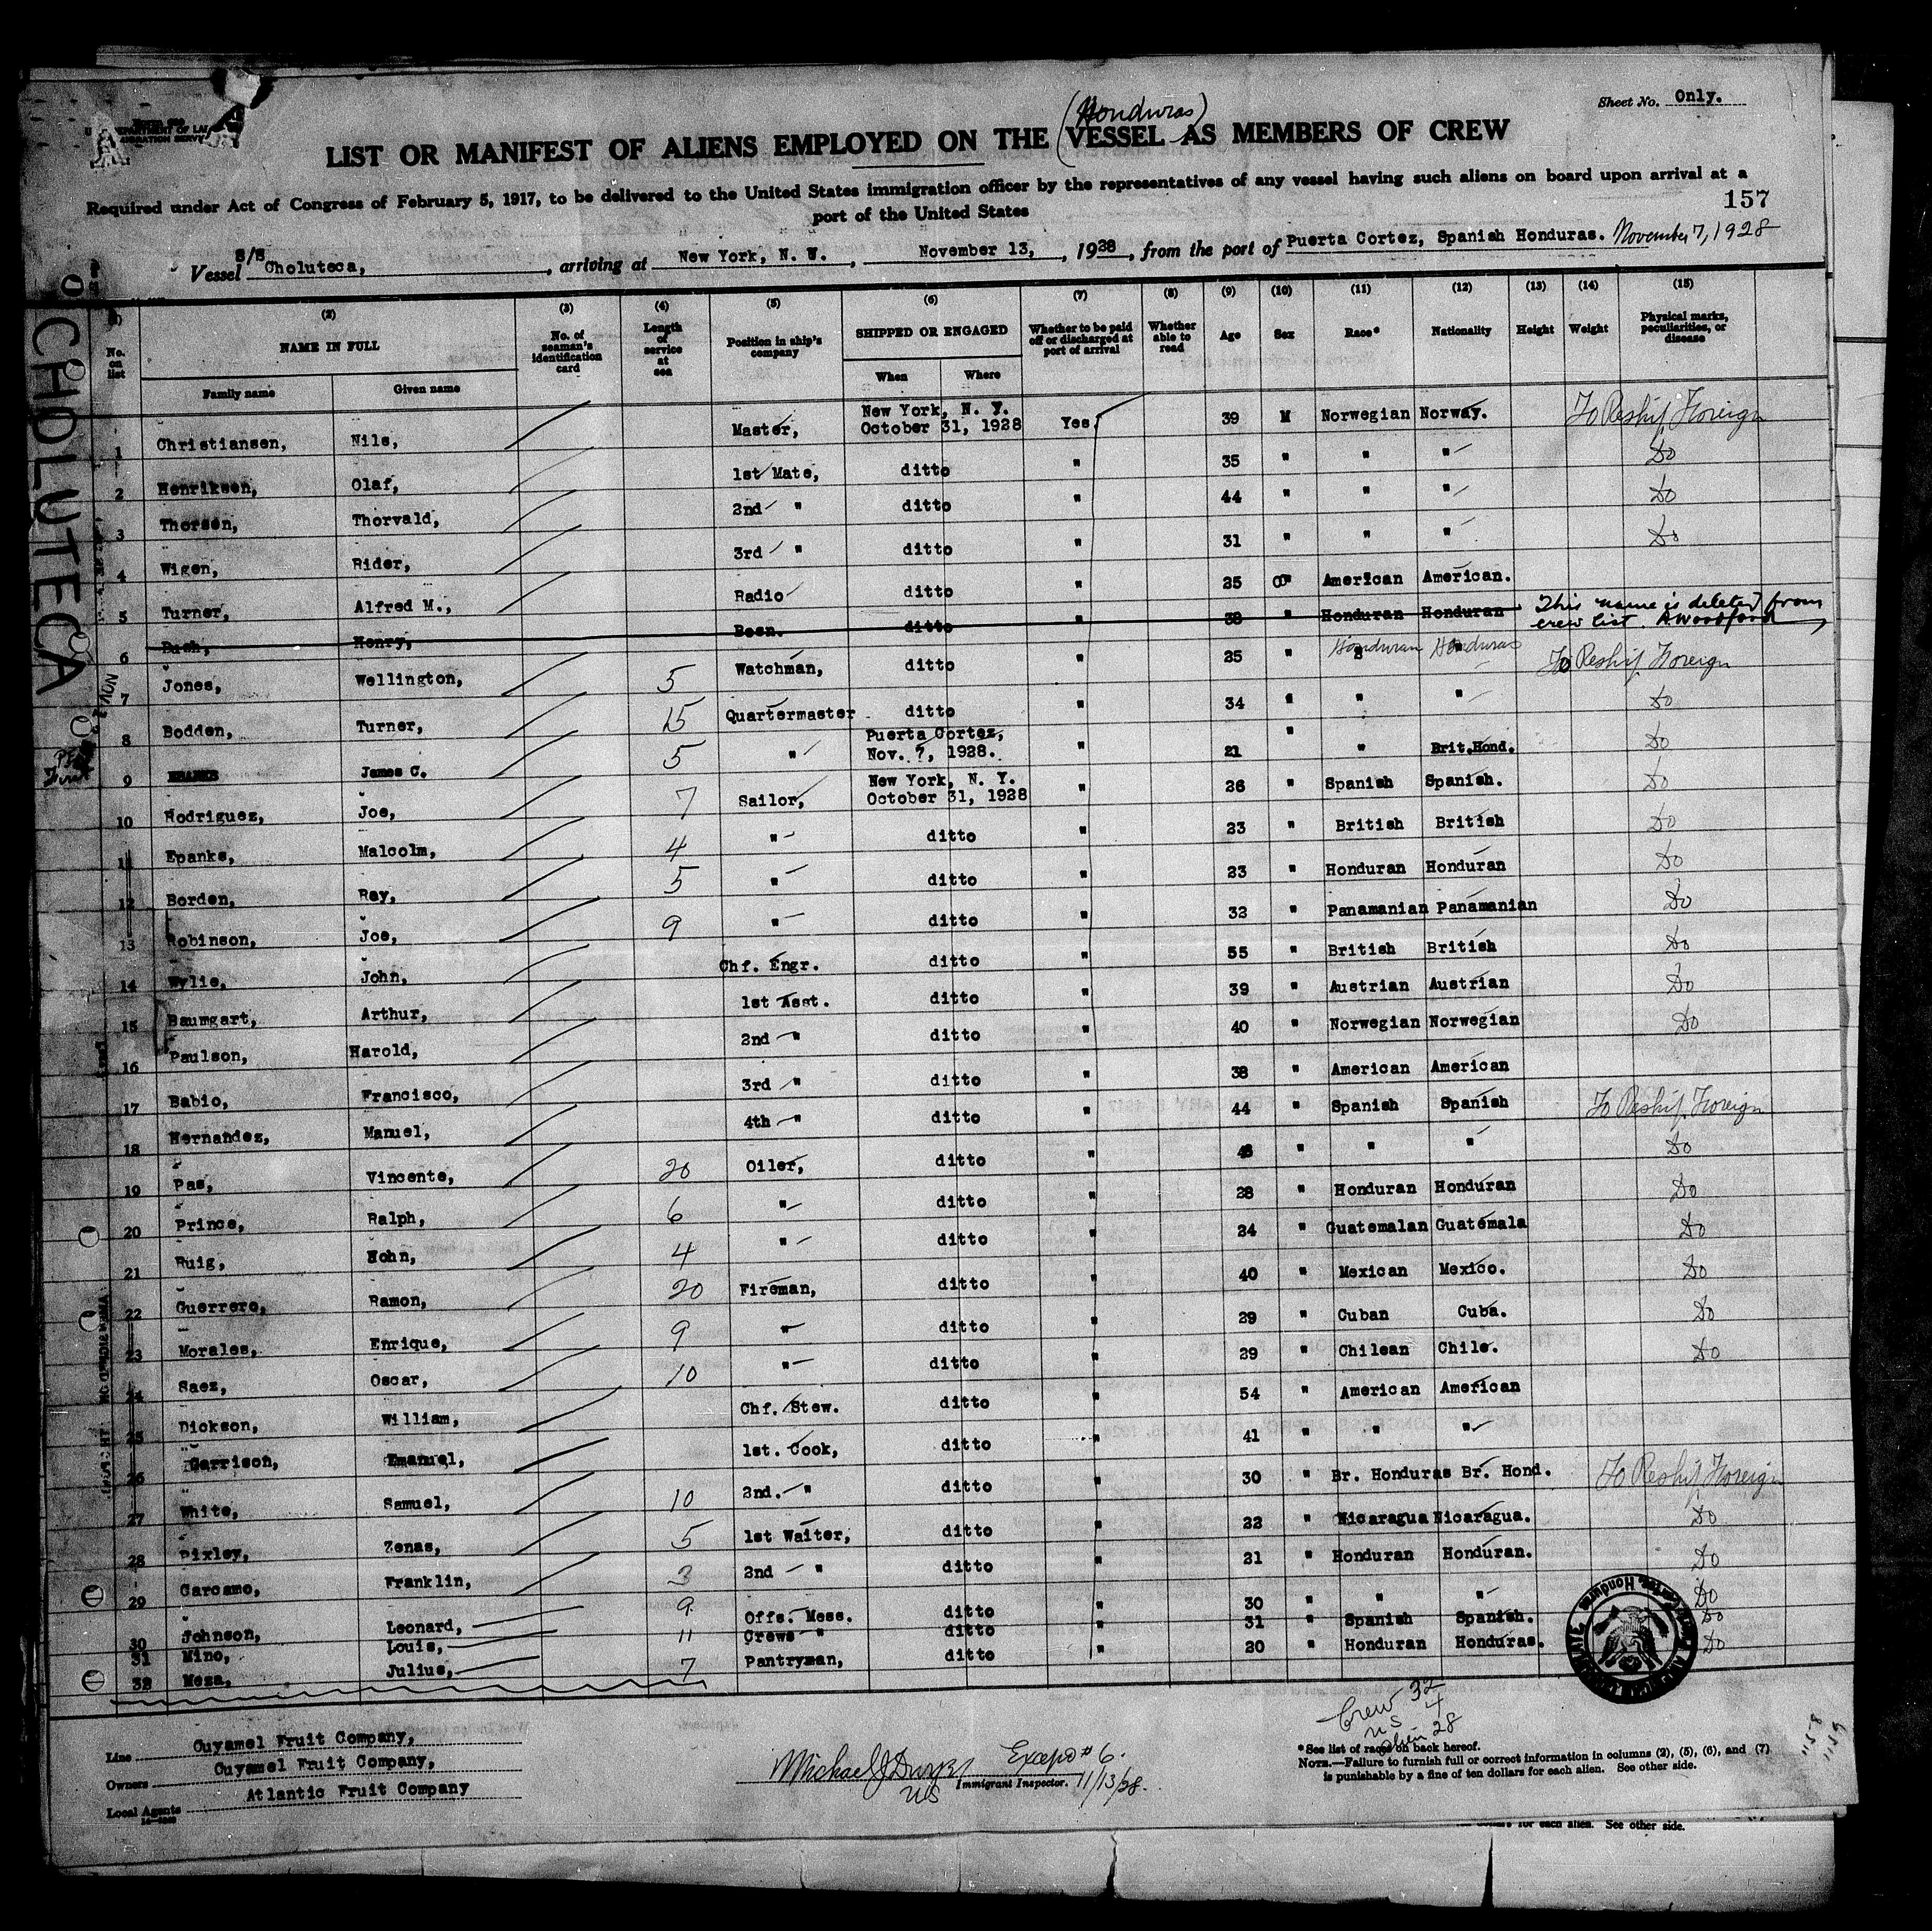 Sheet No. Only.
(Honduras)
LIST OR MANIFEST OF ALIENS EMPLOYED ON THE VESSEL AS MEMBERS OF CREW
Required under Act of Congress of February 5, 1917, to be delivered to the United States immigration officer by the representatives of any vessel having such aliens on board upon arrival at a
port of the United States
157
Vessel S/S Choluteca, arriving at New York, N. Y., November 13, 1928, from the port of Puerta Cortez, Spanish Honduras. November 7, 1928
CHOLUTECA
(2) (3) (4) (5) (6) (7) (8) (9) (10) (11) (12) (13) (14) (15)
No. on list NAME IN FULL No. of seaman's identification card Length of service at sea Position in ship's company SHIPPED OR ENGAGED Whether to be paid off or discharged at port of arrival Whether able to read Age Sex Race* Nationality Height Weight Physical marks, peculiarities, or disease
Family name Given name When Where
1 Christiansen, Nils, Master, New York, N. Y. October 31, 1928 Yes 39 M Norwegian Norway. To Reship Foreign
2 Henriksen, Olaf, 1st Mate, ditto " 35 " " " Do
3 Thorsen, Thorvald, 2nd " ditto " 44 " " " Do
4 Wigen, Rider, 3rd " ditto " 31 " " " Do
5 Turner, Alfred M., Radio ditto " 25 " American American.
6 Bush, Henry, Bosn. ditto 38 " Honduran Honduran This name is deleted from crew list. A Woodford
7 Jones, Wellington, 5 Watchman, ditto " 25 " Honduran Honduras To Reship Foreign
8 Bodden, Turner, 15 Quartermaster ditto " 34 " " " Do
9 James C. 5 " Puerta Cortez, Nov. 7, 1928. " 21 " " Brit.Hond. Do
10 Rodriguez, Joe, 7 Sailor, New York, N. Y. October 31, 1928 " 26 " Spanish Spanish. Do
11 Epanks, Malcolm, 4 " ditto " 23 " British British Do
12 Borden, Ray, 5 " ditto " 23 " Honduran Honduran Do
13 Robinson, Joe, 9 " ditto " 32 " Panamanian Panamanian Do
14 Wylie, John, Chf. Engr. ditto " 55 " British British Do
15 Baumgart, Arthur, 1st Asst. ditto " 39 " Austrian Austrian Do
16 Paulson, Harold, 2nd " ditto " 40 " Norwegian Norwegian Do
17 Babio, Francisco, 3rd " ditto " 38 " American American
18 Hernandez, Manuel, 4th " ditto " 44 " Spanish Spanish To Reship Foreign
19 Pas, Vincente, 20 Oiler, ditto " " " " Do
20 Prince, Ralph, 6 " ditto " 28 " Honduran Honduran Do
21 Ruig, Hohn, 4 " ditto " 24 " Guatemalan Guatemala Do
22 Guerrero, Ramon, 20 Fireman, ditto " 40 " Mexican Mexico. Do
23 Morales, Enrique, 9 " ditto " 29 " Cuban Cuba. Do
24 Saez, Oscar, 10 " ditto " 29 " Chilean Chile. Do
25 Dickson, William, Chf. Stew. ditto " 54 " American American
26 Garrison, Emanuel, 1st. Cook, ditto " 41 " " "
27 White, Samuel, 10 2nd. " ditto " 30 " Br. Honduras Br. Hond. To Reship Foreign
28 Pixley, Zenas, 5 1st Waiter, ditto " 22 " Nicaragua Nicaragua. Do
29 Carcamo, Franklin, 3 2nd " ditto " 21 " Honduran Honduran. Do
30 Johnson, Leonard, 9 Offs. Mess. ditto " 30 " " " Do
31 Mino, Louis, 11 Crews " ditto " 31 " Spanish Spanish. Do
32 Meza, Julius, 7 Pantryman, ditto " 20 " Honduran Honduras. Do
Crew 32
US 4
Alien 28
Line Cuyamel Fruit Company,
Owners Cuyamel Fruit Company,
Local Agents Atlantic Fruit Company
Except #6.
Immigrant Inspector. 11/13/28.
*See list of races on back hereof.
NOTE.—Failure to furnish full or correct information in columns (2), (5), (6), and (7)
is punishable by a fine of ten dollars for each alien. See other side.
for each alien. See other side.